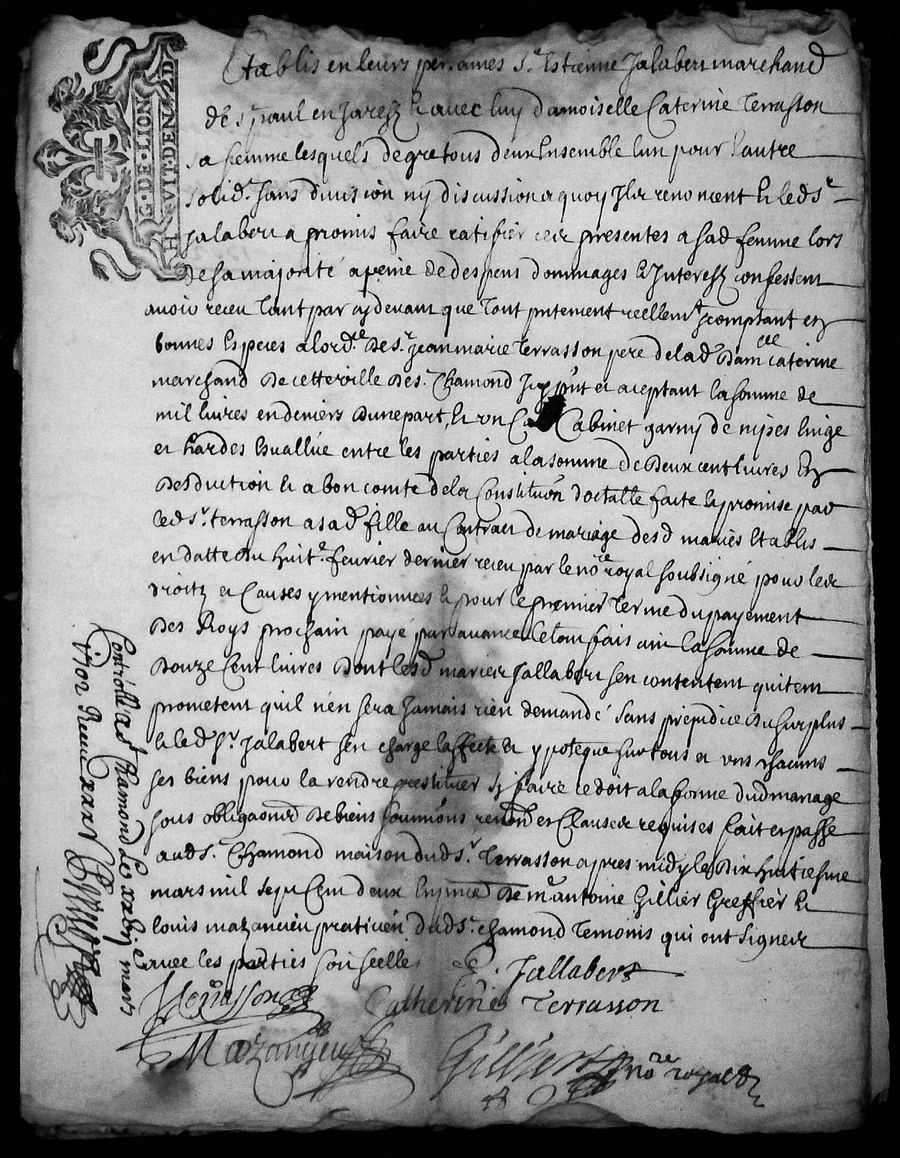 G · DE · LION
H VIT · DEN · 2 D
Establis en leurs persames Sr. Estienne Jalabert marchand
de St paul en Jarestz & avec luy damoiselle Caterine Terrasson
sa femme lesquels de gre tous deux Ensemble lun pour lautre
solidt. sans division ny discussion a quoy Ilz renoncent & ledt Sr
Jalabert a promis faire ratifier ces presentes a sad femme lors
de sa majorité a peine de despens dommages & Interestz confessent
avoir receu tant par cy devant que tout pntement reellemt. comptant en
bonnes Especes a lordre de Sr. jean marie Terrasson pere de lad Damlle caterine
marchand de cette ville de St. Chamond Icy pnt et aceptant la somme de
mil livres en deniers dune part, & un Cabinet garny de nipes linge
et hardes Evallué entre les parties a la somme de deux cent livres En
desduction & a bon comte de la Constitution doctalle faite & promise par
led Sr. terrasson a sa d. fille au Contrat de mariage desd mariés Establis
en datte du huitr. fevrier dernier receu par le nore royal soubsigné pour les
droitz et Causes y mentionnées & pour le premier Terme du payement
des Roys prochain payé par avance le tout faisant la somme de
Douze Cent livres dont lesd mariez Jallabert sen contentent quitent
prometent quil n'en sera Jamais rien demandé sans prejudice du surplus
& led Sr. Jalabert sen charge laffecte et ypoteque sur tous et uns chacuns
ses biens pour la rendre & restituer si faire le doit a la forme dud mariage
sous obligaonrd de biens soumions renon et Clauses requises fait et passé
aud St. Chamond maison dud Sr. Terrasson apres midy le dix huitiesme
mars mil sept Cent deux En pnce de me antoine Gillier Greffier &
louis mazancieu praticien dud St. chamond Temoins qui ont signez
avec les parties
Jallabert
Terrasson
Catherine Terrasson
Mazanyeu
Gillier nore royal
Controllé a St Chamond le xxbij e mars
1702 Receu xxx s